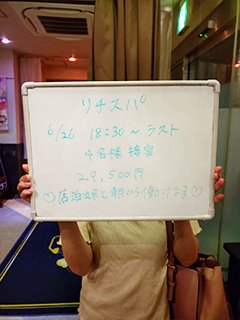 リチスパ
6/26 18:30～ラスト
4名様 接客
29,500円
♡店泊ﾖﾋﾞで朝から働けます♡